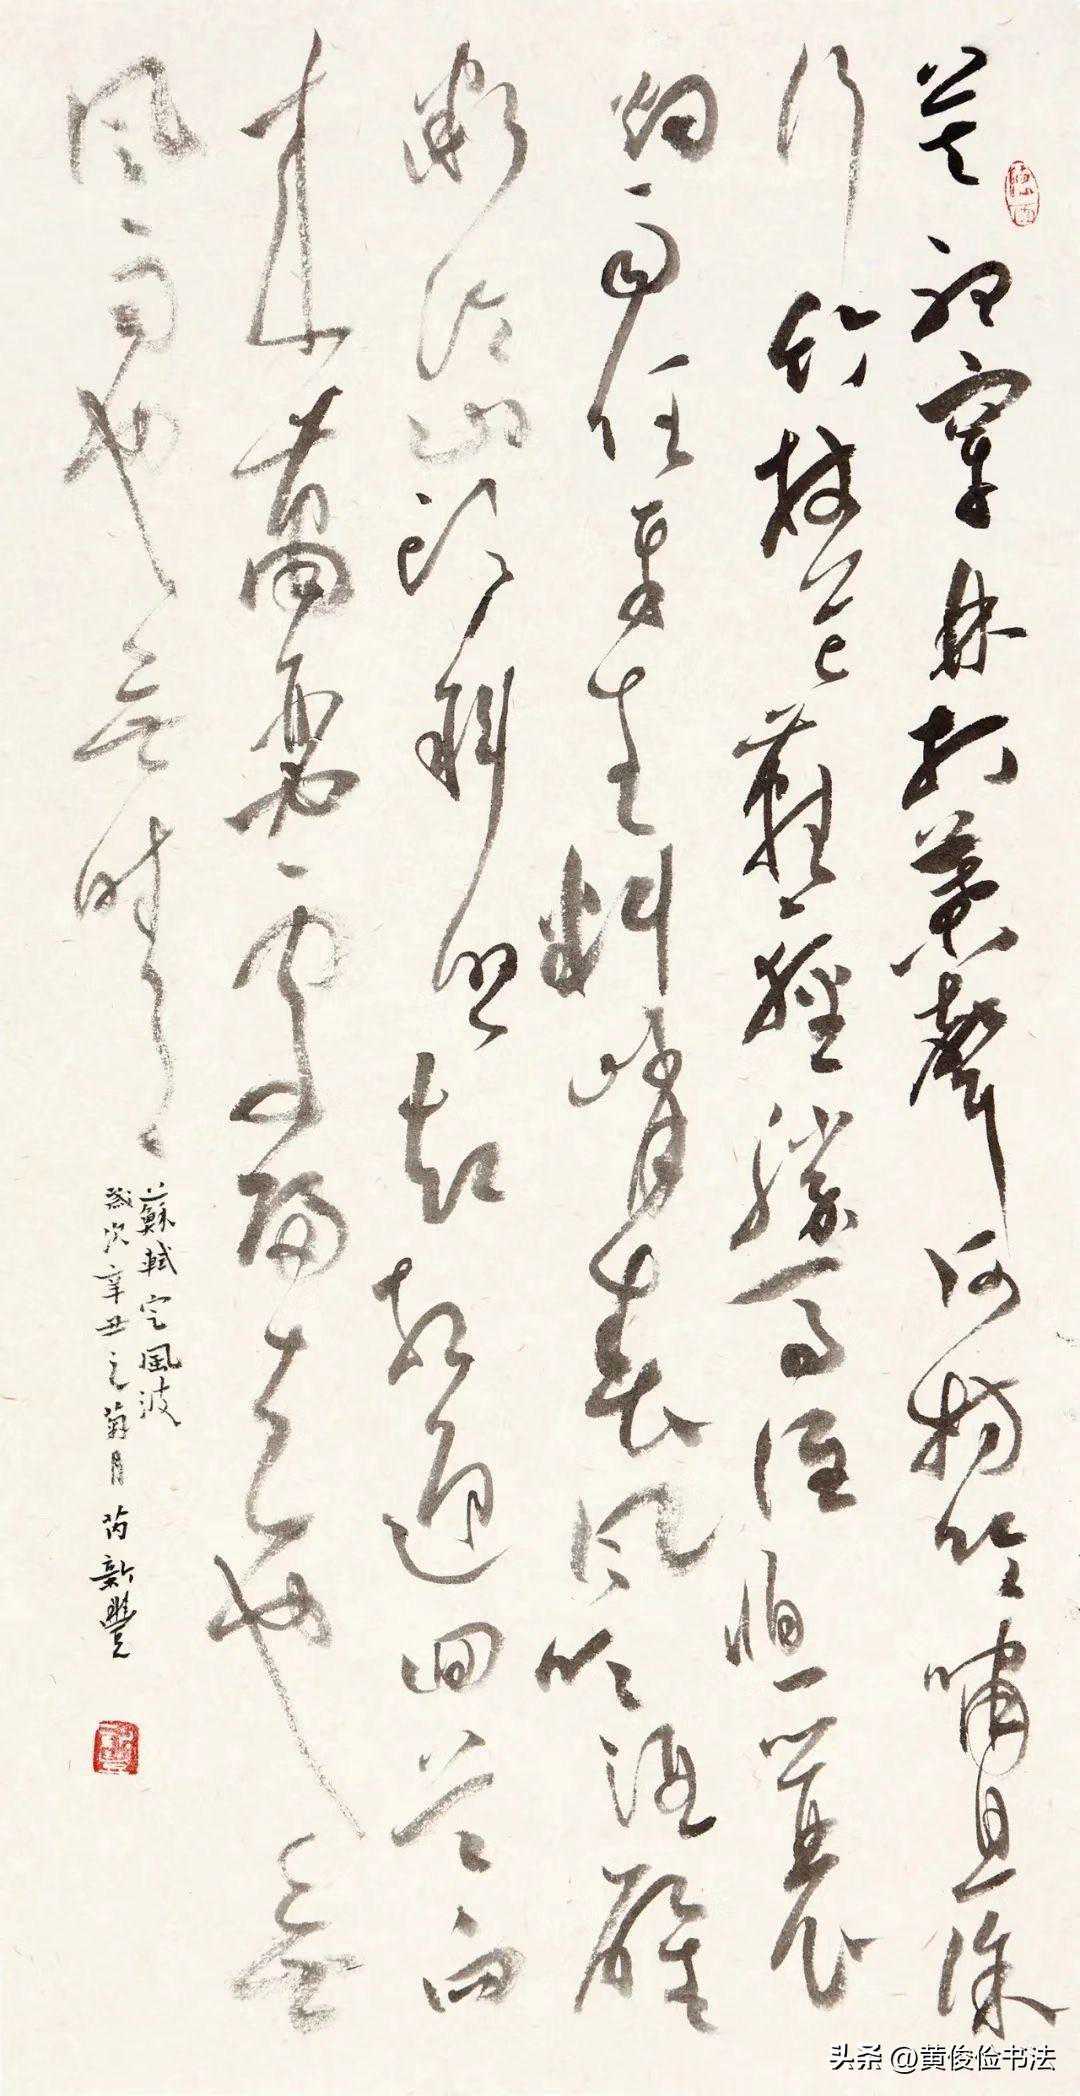 莫聽穿林打葉聲何妨吟嘯且徐
行竹杖芒鞋輕勝馬誰怕一蓑
烟雨任平生料峭春風吹酒醒
微冷山頭斜照却相迎回首向
來蕭瑟處歸去也無
風雨也無晴
蘇軾定風波
歲次辛丑之菊月芮新豐
头条 @黄俊俭书法